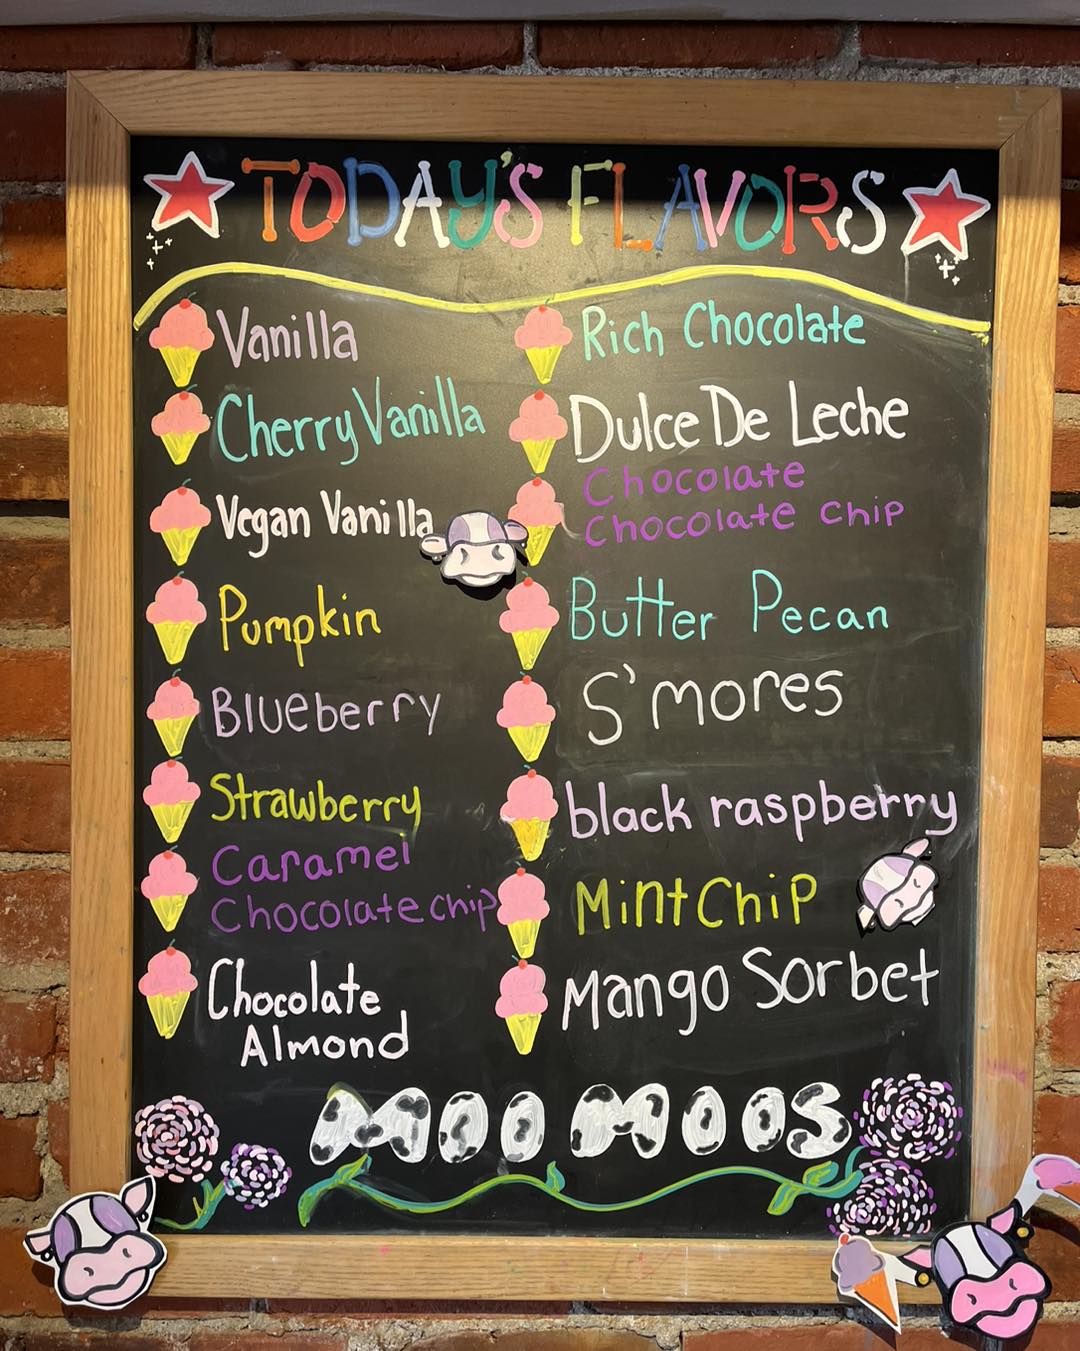 TODAY'S FLAVORS
Vanilla
Cherry Vanilla
Vegan Vanilla
Pumpkin
Blueberry
Strawberry
Caramel
Chocolate chip
Chocolate
Almond
Rich Chocolate
Dulce De Leche
Chocolate
Chocolate chip
Butter Pecan
S'mores
black raspberry
Mint Chip
Mango Sorbet
MOO MOOS